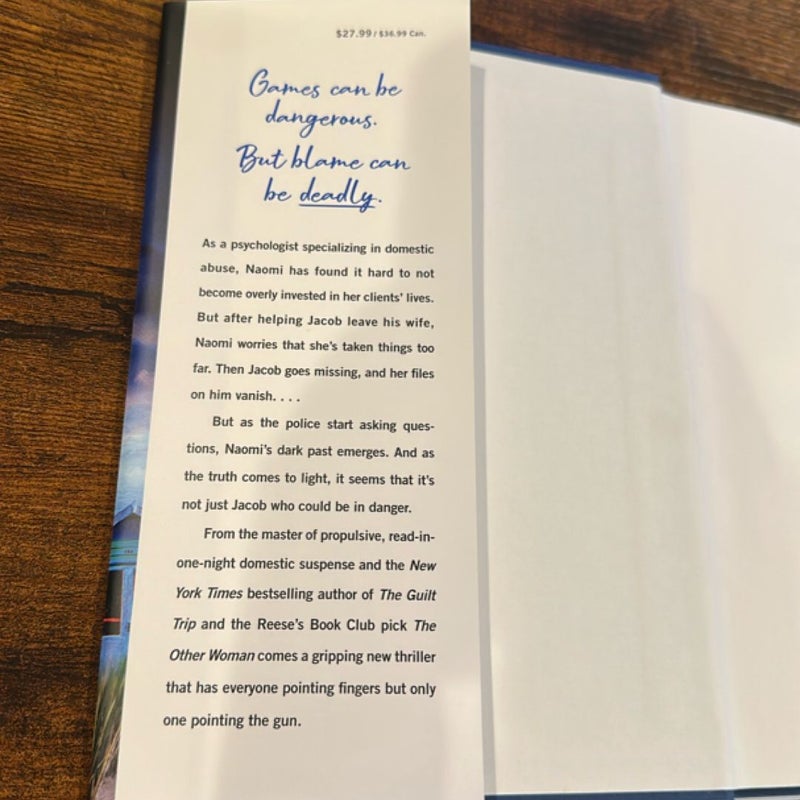 $27.99 / $36.99 Can.
Games can be
dangerous.
But blame can
be deadly.
As a psychologist specializing in domestic
abuse, Naomi has found it hard to not
become overly invested in her clients' lives.
But after helping Jacob leave his wife,
Naomi worries that she's taken things too
far. Then Jacob goes missing, and her files
on him vanish. . . .
But as the police start asking ques-
tions, Naomi's dark past emerges. And as
the truth comes to light, it seems that it's
not just Jacob who could be in danger.
From the master of propulsive, read-in-
one-night domestic suspense and the New
York Times bestselling author of The Guilt
Trip and the Reese's Book Club pick The
Other Woman comes a gripping new thriller
that has everyone pointing fingers but only
one pointing the gun.